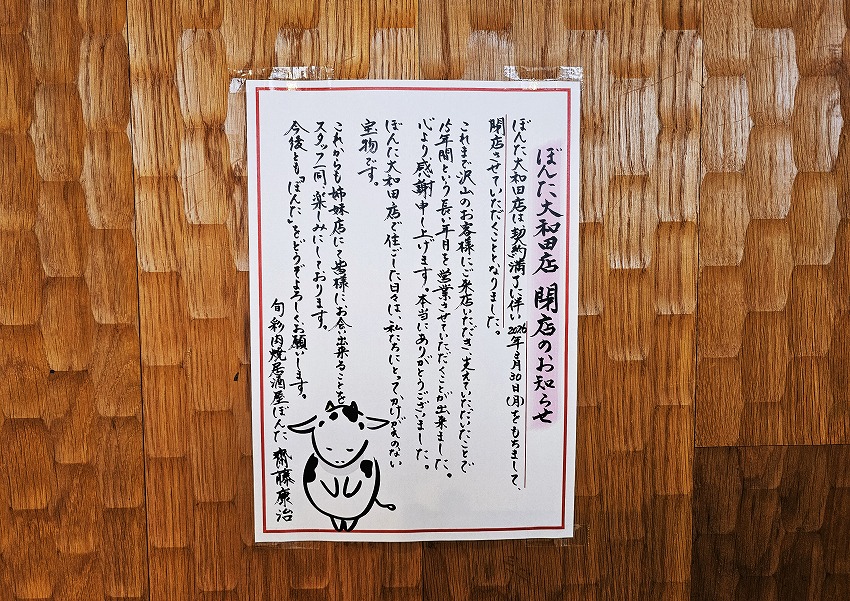 ぼんた大和田店 閉店のお知らせ
ぼんた大和田店は契約満了に伴い2026年3月30日(月)をもちまして、
閉店させていただくこととなりました。
これまで沢山のお客様にご来店いただき、支えていただいたことで
15年間という長い年月を営業させていただくことが出来ました。
心より感謝申し上げます。本当にありがとうございました。
ぼんた大和田店で過ごした日々は、私たちにとってかけがえのない
宝物です。
これからも姉妹店にて皆様にお会い出来ることを
スタッフ一同、楽しみにしております。
今後とも「ぼんた」をどうぞよろしくお願いします。
旬彩肉焼居酒屋ぼんた 齋藤康治